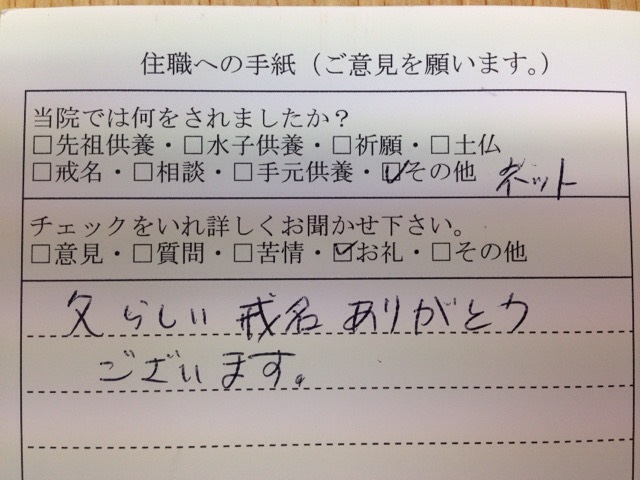 住職への手紙（ご意見を願います。）
当院では何をされましたか？
□先祖供養・□水子供養・□祈願・□土仏
□戒名・□相談・□手元供養・☑その他 ネット
チェックをいれ詳しくお聞かせ下さい。
□意見・□質問・□苦情・☑お礼・□その他
父らしい戒名ありがとう
ございます。